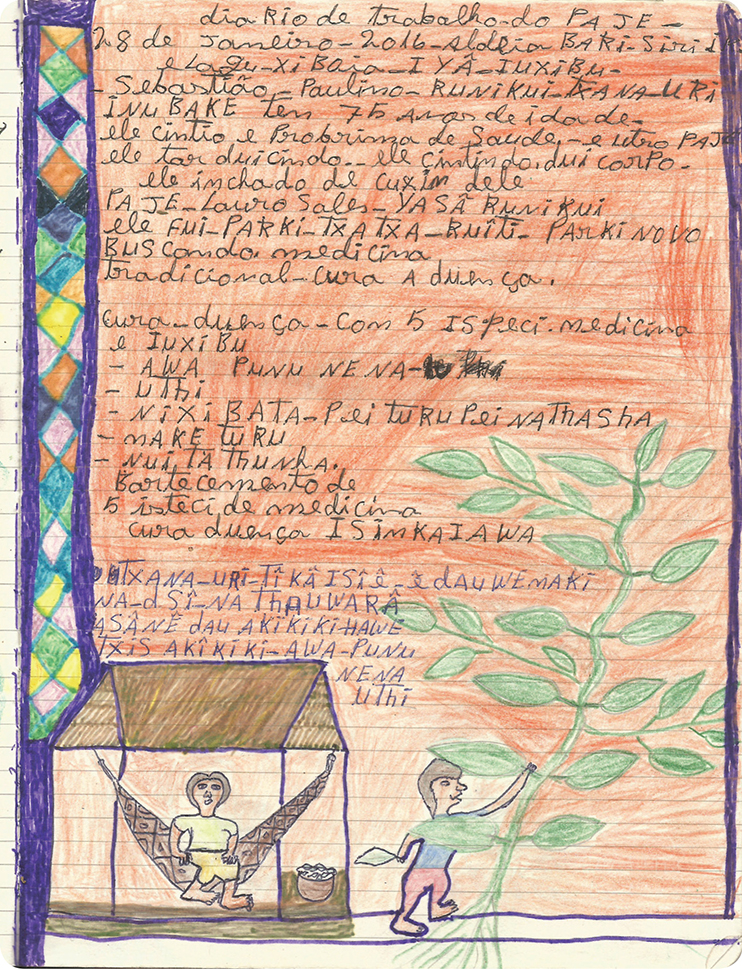 diaRio de trabalho do PAJE-
28 de Janeiro-2016-Aldeia BARi-Siri
e Lagu-xiBaia-IYÂ-IUXIBU-
-Sebastião-Paulino-RUNIKUI-TXANA-URI
INU BAKE ten 75 Anos de idade-
ele cintio e Probrima de Saude,-e utro PAJE
ele tar duicindo.. ele cintindo.dui corpo-
ele inchado del cuxin dele
PAJE-Lauro Sales-YASÂ RUNIKUI
ele FUi-PARKi-TXATXA-RUiTi-PARKiNOVO
BUScando. medicina
tradicional-cura A duença.
cura-duença-com 5 ISPeci.medicina
e IUXIBU
- AWA PUNU NENA-
- UTHi
-NiXi BATA-Pei TURU Pei NATHASHA
-MAKE TURU
-NUiTA THUNHA.
Bartecemento de
5 isteci de medicina
cura duença ISiNKAIAWA
TXANA-URI-TiKÂ ISi ê-ê dAUWEMAKi
NA-dSÎ-NA THAUWARÂ
ASÂNÊ dAU AKiKiKi-HAWE
TXiS AKÎKiKi-AWA-PUNU
NENA
UThi